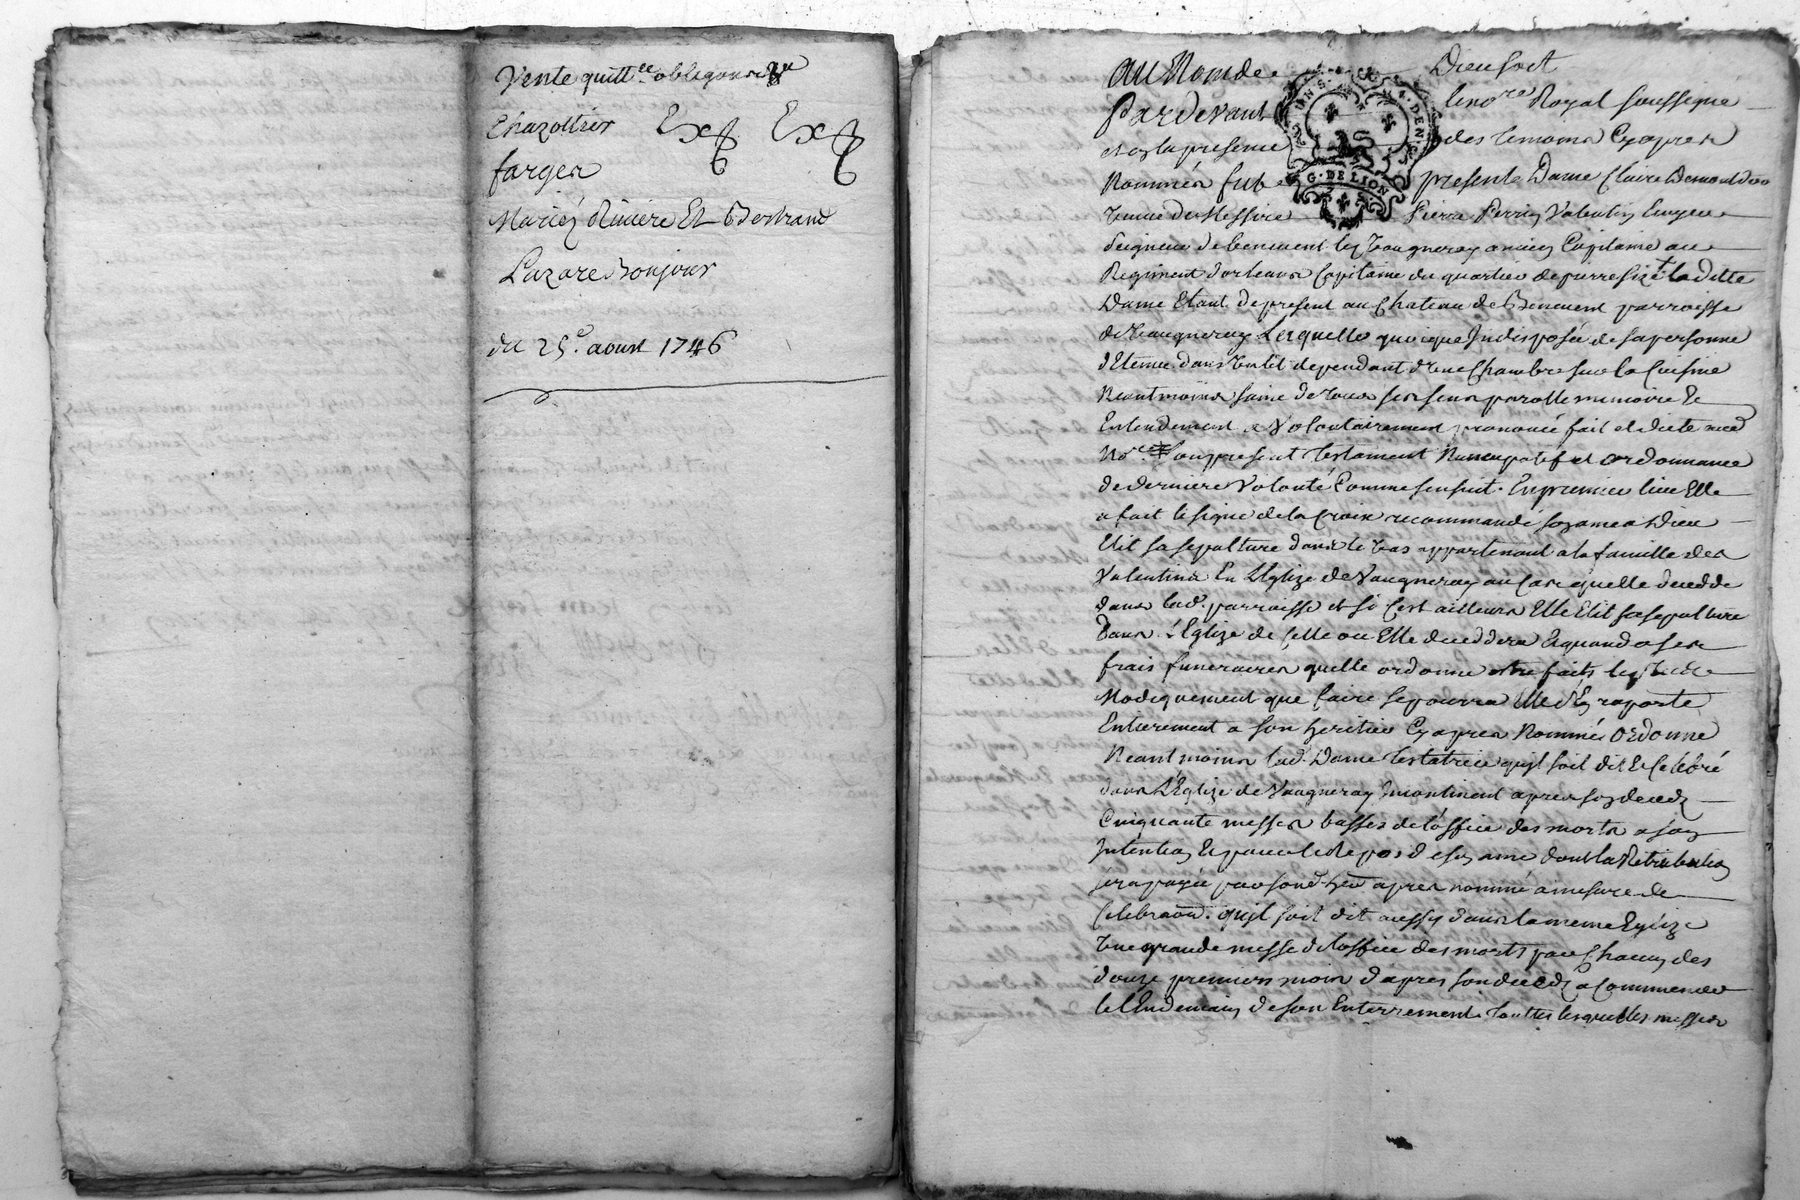 Vente quittce obligaon
Chazottier Ex Ex
farges
Marie Riviere Et Bertrand
Lazare Bonjour
du 25e. aoust 1746
au Nom de Dieu soit
Pardevant le nore Royal soussigné
et en la presence des temoins Cyapres
Nommés fut presente Dame Claire
veuve de Messire Pierre Perrin Valentin Ecuyer
Seigneur de benevent les Vaugneray ancien Capitaine au
Regiment dorleans Capitaine du quartier de pierresize laditte
Dame Etant de present au Chateau de Benevent parroisse
de Vaugneray Laquelle quoique Indisposée de sa personne
détenue dans un lit dependant d'une Chambre sur la Cuisine
Neantmoins saine de tous ses sens parolle memoire Et
Entendement a Volontairement prononcé fait et dicté aud
Nore son present testament Nuncupatif et ordonnance
de derniere Volonté Comme sensuit. En premier lieu Elle
a fait le signe de la Croix recommandé son ame a Dieu
Elit sa sepulture dans le vas appartenant a la famille des
Valentins En L'Eglize de Vaugneray au cas quelle decedde
dans lad. parroisse et si C'est ailleurs Elle Elit sa sepulture
dans L'Eglize de celle ou Elle deceddera Equand a ses
frais funeraires quelle ordonne estre faits le plus
Modiquement que faire se pourra Elle s'En raporte
Entierement a son heritier Cyapres Nommé Ordonne
Neantmoins lad. Dame testatrice quil soit dit Et Celebré
dans L'Eglize de Vaugneray Incontinent apres son decedz
Cinquante messes basses de l'office des morts a son
Intention Et pour le Repos de son ame dont la Retribution
sera payée par sond. her apres nommé a mesure de
Celebraon. quil soit dit aussy dans la meme Eglize
Une grande messe de l'office des morts par Chacun des
douze premiers mois d'apres son decedz a Commencer
le lendemain de son Enterrement. toutes lesquelles messes
G. DE LION